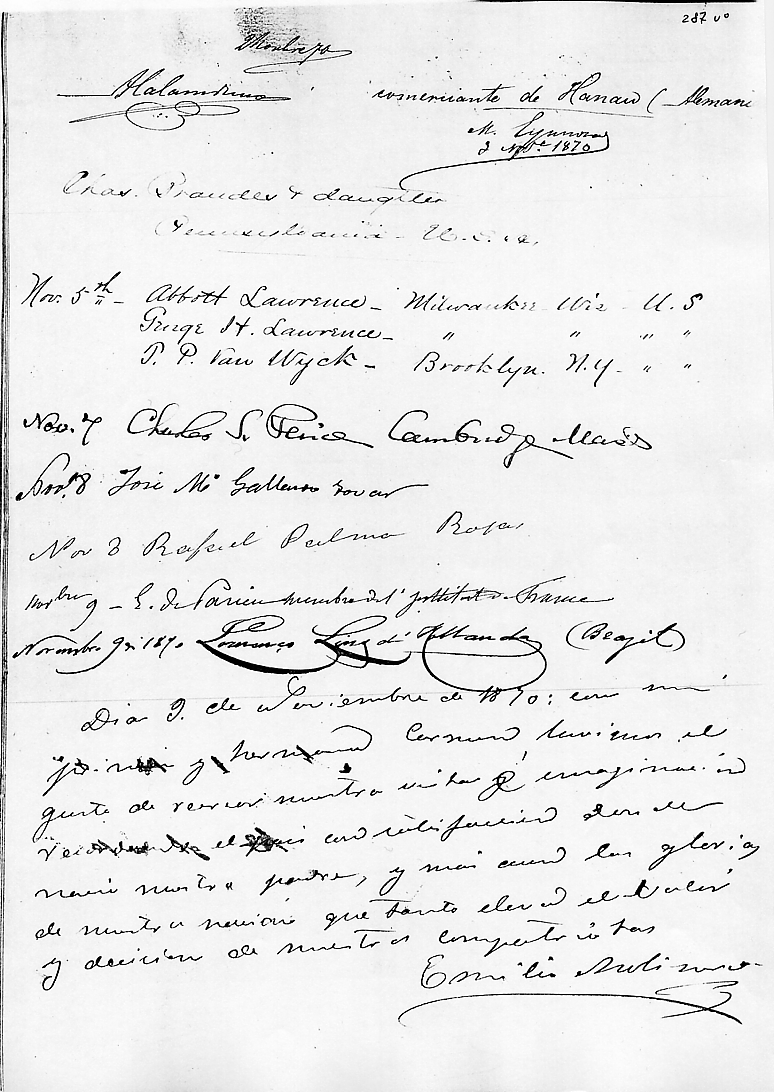 287 vo
comerciante de Hanau (Alemani
M.
2 Nove 1870
Chas. Brandes & daughter
Pennsilvania - U.S.a.
Nov. 5th - Abbott Lawrence - Milwaukee Wis - U.S
George H. Lawrence - " " " "
P. P. Van Wyck - Brooklyn. N.Y. - " "
Nov. 7 Charles S. Peirce Cambridge Mass
Nov. 8 José Ma Tovar
Nov 8 Rafael Palma Rojas
9 - E. de Parieu membre de l'Institut de France
Novembro 9 de 1870 Lourenço d' (Brazil)
Dia 9. de Noviembre de 1870: con mi
y hermano tuvimos el
gusto de recrear nuestra vista é imaginacion
el con satisfaccion donde
nació nuestro padre, y más aun las glorias
de nuestra nacion que tanto elevó el valor
y decicion de nuestros compatriotas
Emilio